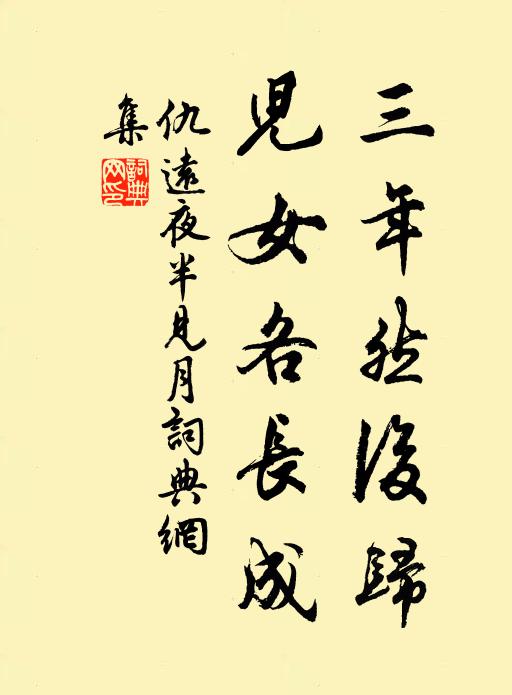 三年然後歸
兒女各長成
仇遠夜半見月詞典網
集
詞典網印